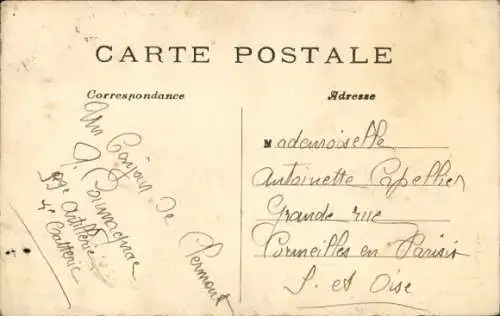 CARTE POSTALE
Correspondance
Adresse
Un Conjoin de Clermont
J.
99e Artillerie
4e Batterie
Mademoiselle
Antoinette Capellier
Grande rue
Cormeilles en Parisis
S. et Oise